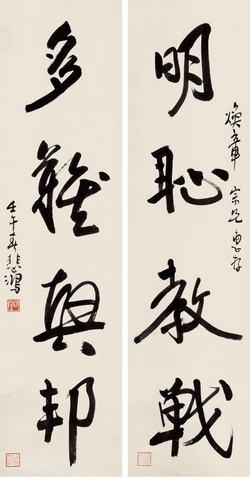 明恥教戰
煥章宗兄惠存
多難興邦
壬午春悲鴻